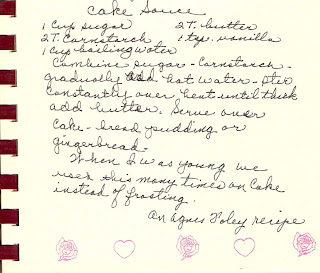 Cake Sauce
1 Cup sugar 2 T. butter
2 T. Cornstarch 1 tsp. vanilla
1 Cup boiling water
Combine sugar - Cornstarch -
gradually add hot water - Stir
constantly over heat until thick
add butter. Serve over
Cake - bread pudding or
gingerbread.
When I was young we
used this many times on Cake
instead of frosting.
An Agnes Foley recipe